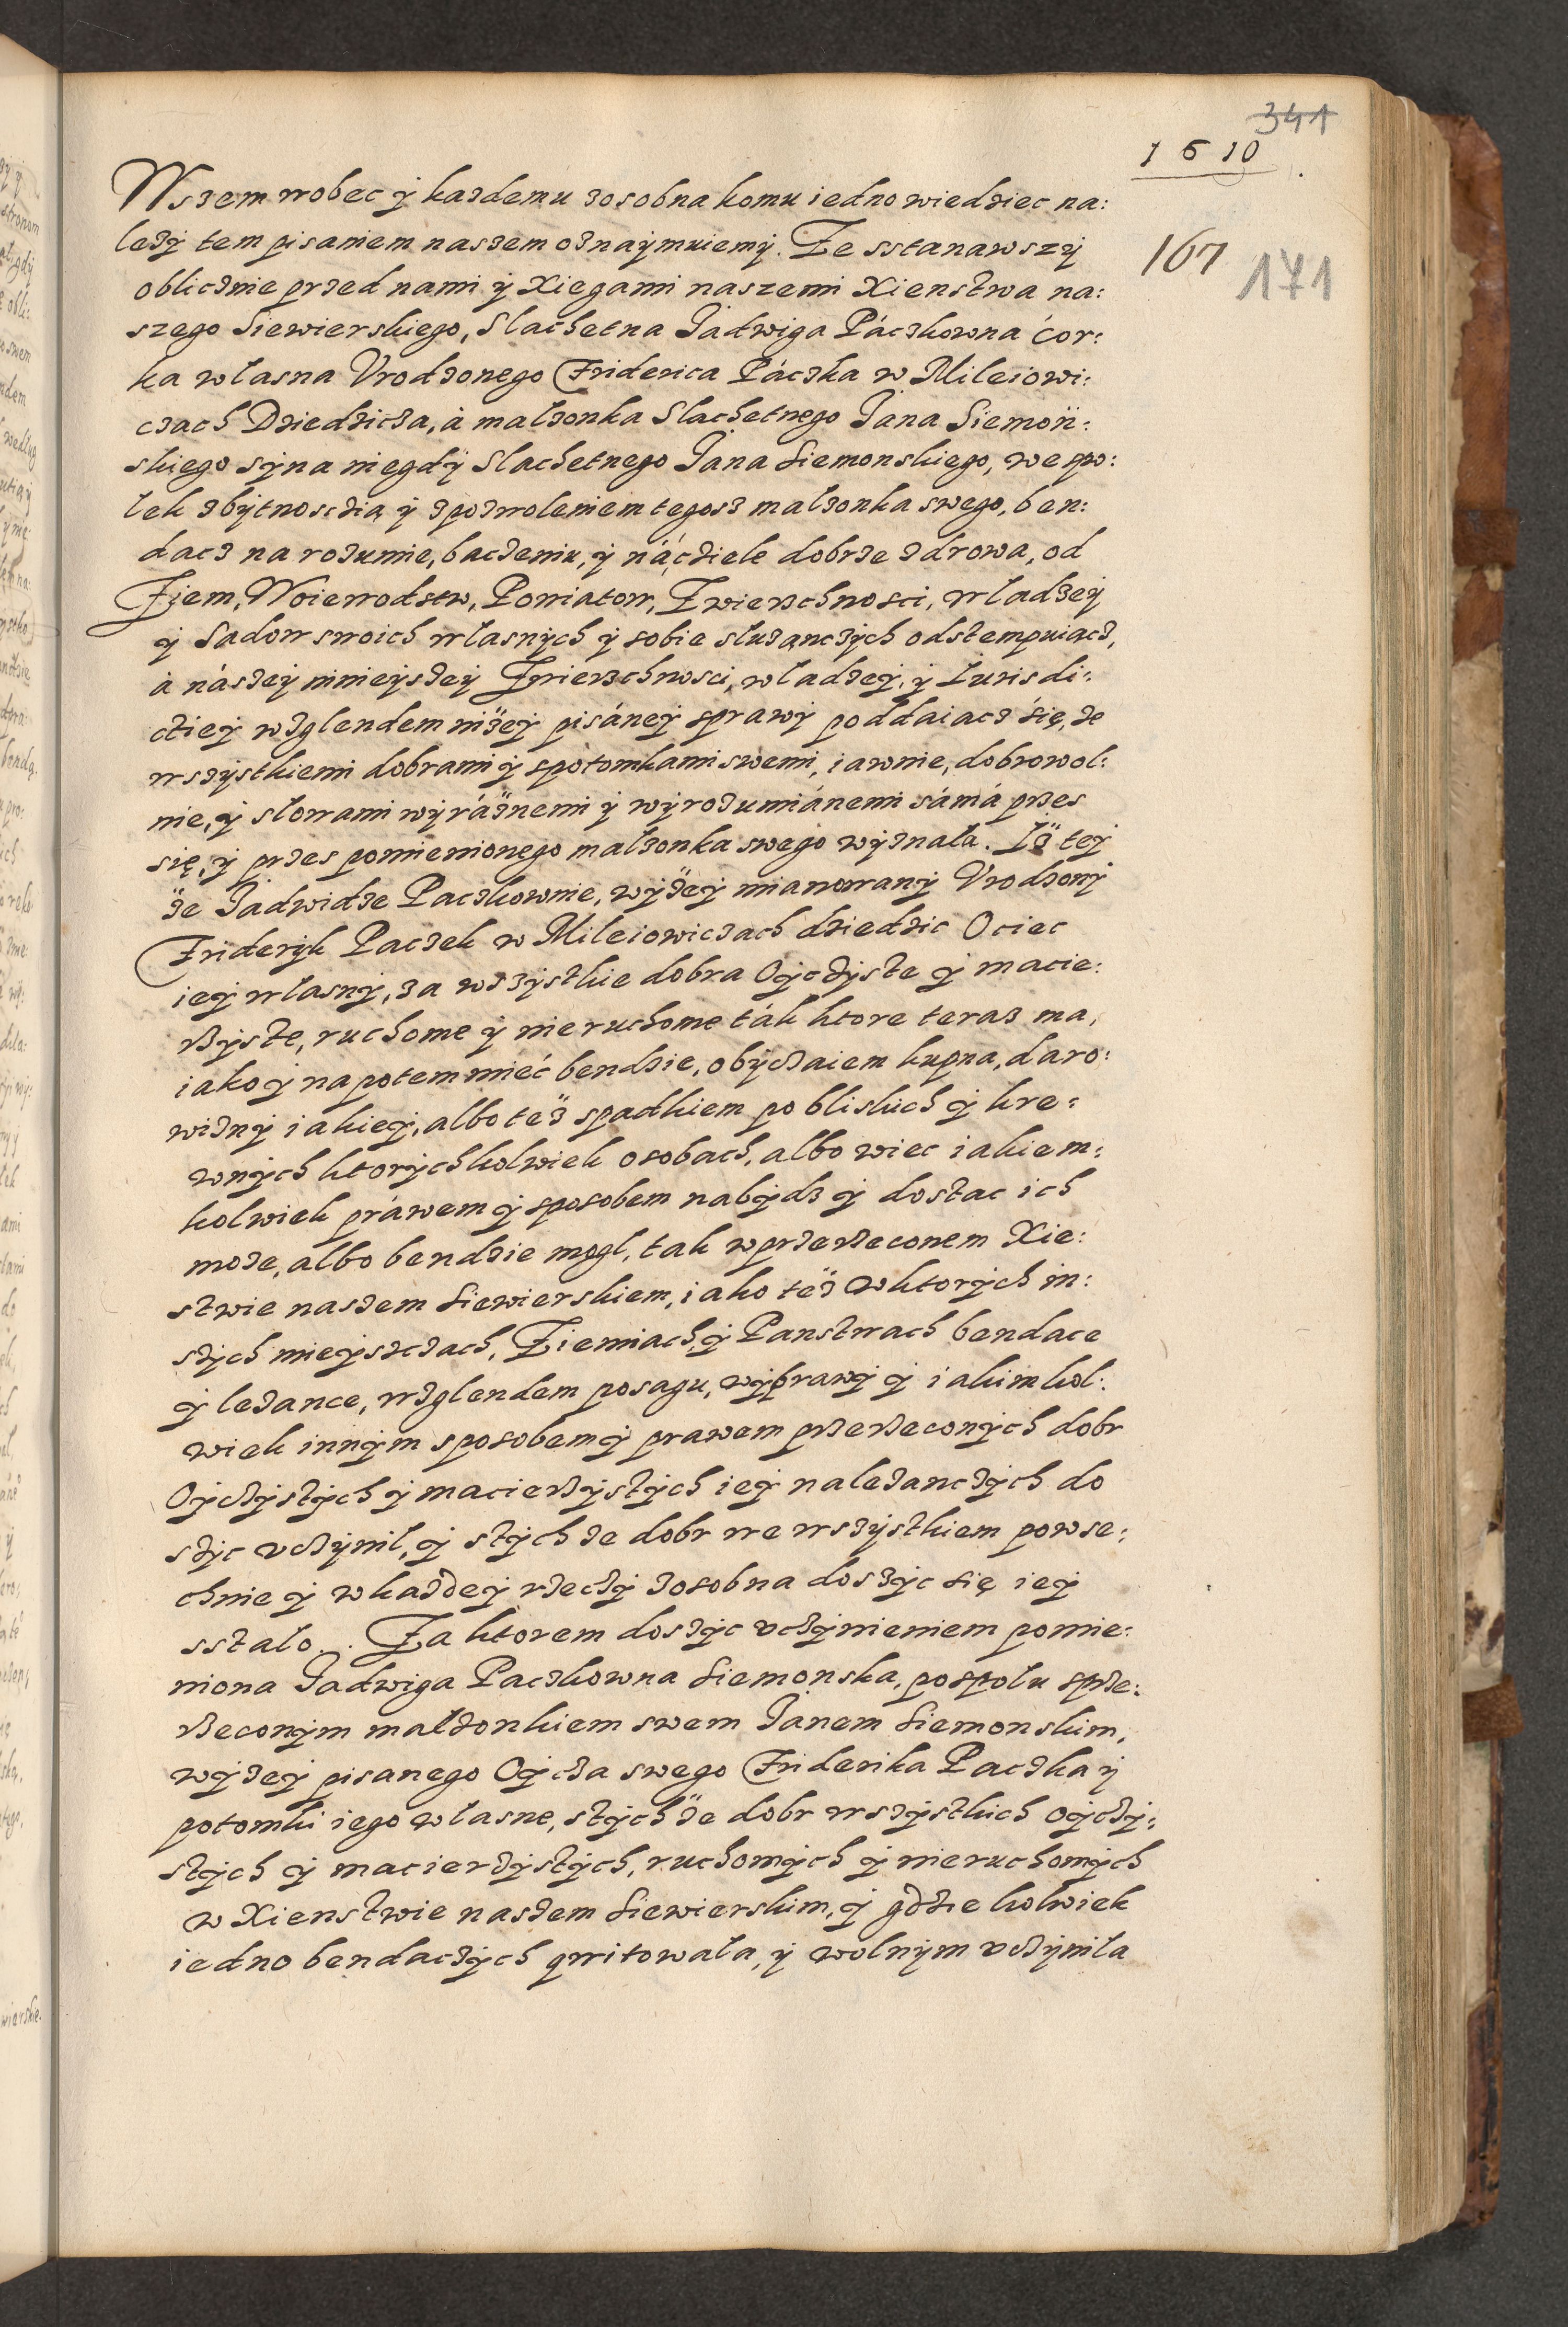 341
1610
167
171
Wszem wobec ÿ kazdemu zosobna komu iedno wiedziec na:
lezÿ tem pisaniem naszem oznaÿmuiemÿ. Ze sstanawszÿ
oblicznie przed nami ÿ Xiegami naszemi Xienstwa na:
szego Siewierskiego, Slachetna Jadwiga Páczkowna ćor:
ka własna Vrodzonego Friderica Páczka w Mileiowi:
czach Dziedzicza, à małzonka Slachetnego Jana Siemoń:
skiego sÿna niegdÿ Slachetnego Jana Siemonskiego, wespo:
lek zbÿtnosczią ÿ zpozwoleniem tegosz malzonka swego, ben:
dacz na rozumie, baczeniu, ÿ náćziele dobrze zdrowa, od
Zÿem, Woiewodztw, Powiatow, Zwierzchnosci, władzeÿ
ÿ Sadow swoich własnÿch ÿ sobie słuzanczÿch odstempuiącz,
à názzeÿ innieÿszeÿ Zwierzchnosci, władzeÿ, ÿ Iurisdi:
ctieÿ wzglendem niżeÿ pisáneÿ sprawÿ poddaiacz się, ze
wszÿstkiemi dobrami ÿ spotomkami swemi, iawnie, dobrowol:
nie, ÿ słowami wÿráżnemi ÿ wÿrozumiánemi sámá przes
się, ÿ przes pomienionego małzonka swego wÿznała. Iż teÿ
że Jadwidze Paczkownie, wÿżeÿ mianowanÿ Vrodzonÿ
Friderÿk Paczek w Mileiowiczach dziedzic Ociec
ieÿ własnÿ, za wszÿstkie dobra Oÿczÿste ÿ macie:
rzÿste, ruchome ÿ nieruchome ták ktore teraz ma,
iako ÿ napotem mieć bendzie, obÿczaiem kupna, daro:
wiznÿ iakieÿ, albo też spadkiem po bliskich ÿ kre:
wnÿch ktorÿchkolwiek osobach, albo wiec iakiem:
kolwiek práwem ÿ sposobem nabÿdz ÿ dostac ich
moze, albo bendzie mogl, tak wprzerzeconem Xie:
stwie naszem Siewierskiem, iako też wktorÿch in:
szÿch mieÿsczach, Ziemiach, ÿ Panstwach bendace
ÿ lezance, wzglendem posagu, wÿprawÿ ÿ iakimkol:
wiek innÿm sposobem ÿ prawem przerzeconÿch dobr
Oÿczÿstÿch ÿ macierzÿstÿch ieÿ nalezanczÿch do
szÿc vczÿnil, ÿ stÿch ze dobr we wszÿstkiem powse:
chnie ÿ wkazdeÿ rzeczÿ zosobna doszÿc się ieÿ
sstało. Za ktorem doszÿc vczÿnieniem pomie:
niona Jadwiga Paczkowna Siemonska, pospołu sprze:
rzeconÿm małzonkiem swem Janem Siemonskim,
wÿzeÿ pisanego Oÿcza swego Friderika Paczka ÿ
potomki iego własne, stÿchże dobr wszÿstkich oÿczÿ:
stÿch ÿ macierzÿstÿch, ruchomÿch ÿ nieruchomÿch
w Xienstwie naszem Siewierskim, ÿ gdziekolwiek
iedno bendaczÿch qwitowała, ÿ wolnÿm vczÿniła